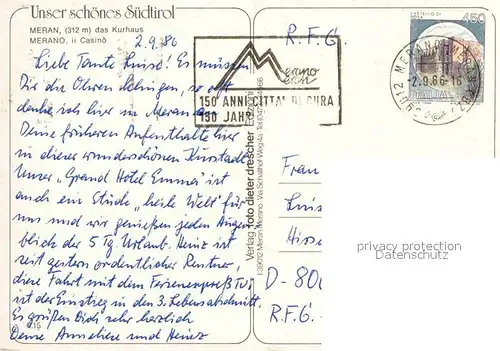 Unser schönes Südtirol
MERAN, (312 m) das Kurhaus
MERANO, il Casinò
2.9.86
Liebe Tante Luise! Es müssen
Dir die Ohren klingen, so oft
denke ich hier in Meran an
Deine früheren Aufenthalte hier
in dieser wunderschönen Kurstadt.
Unser "Grand Hotel Emma" ist
auch ein Stück "heile Welt" für
uns und wir genießen jeden Augen
blick der 5 Tg. Urlaub. Heinz ist
seit gestern ordentlicher Rentner,
diese Fahrt mit dem Ferienexpreß TUI
ist der Einstieg in den 3. Lebensabschnitt.
Es grüßen Dich sehr herzlich
Deine Anneliese und Heinz
Verlag foto dieter drescher
I-39012 Meran/Merano - Via Schallhof Weg 4a
Merano
150 ANNI CITTA' DI CURA
150 JAHRE
R.F.G.
450
39012 MERANO
2.9.86-16
Frau
Luis
D-800
R.F.G.
privacy protection
AKpool.de